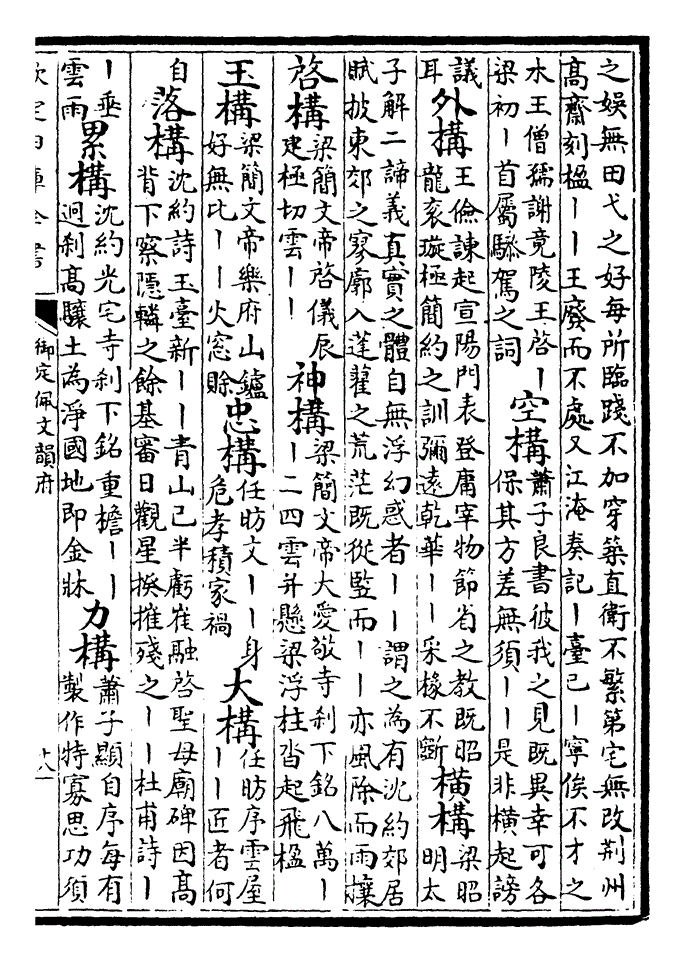 之娛無田弋之好每所臨踐不加穿築直衛不繁第宅無改荆州
高齋刻楹丨丨王廢而不處又江淹奏記丨臺已丨寧俟不才之
木王僧孺謝竟陵王啓丨
梁初丨首屬驂駕之詞
空構
蕭子良書彼我之見既異幸可各
保其方差無須丨丨是非橫起謗
議
耳
外構
王儉諫起宣陽門表登庸宰物節省之教既昭
龍衮璇極簡約之訓彌遠乾華丨丨采椽不斵
橫構
梁昭
明太
子解二諦義真實之體自無浮幻惑者丨丨謂之為有沈約郊居
賦披東郊之寥廓入蓬藋之荒茫既從竪而丨丨亦風除而雨攘
啓構
梁簡文帝啓儀辰
建極切雲丨丨
神構
梁簡文帝大愛敬寺刹下銘八萬丨
丨二四雲并懸梁浮柱沓起飛楹
玉構
梁簡文帝樂府山鑪
好無比丨丨火窓賒
忠構
任昉文丨丨身
危孝積家禍
大構
任昉序雲屋
丨丨匠者何
自
落構
沈約詩玉臺新丨丨青山已半虧崔融啓聖母廟碑因高
背下察隱轔之餘基審日觀星揆摧殘之丨丨杜甫詩丨
丨垂
雲雨
累構
沈約光宅寺刹下銘重檐丨丨
迥刹高驤土為淨國地即金牀
力構
蕭子顯自序每有
製作特寡思功須
欽定四庫全書
御定佩文韻府